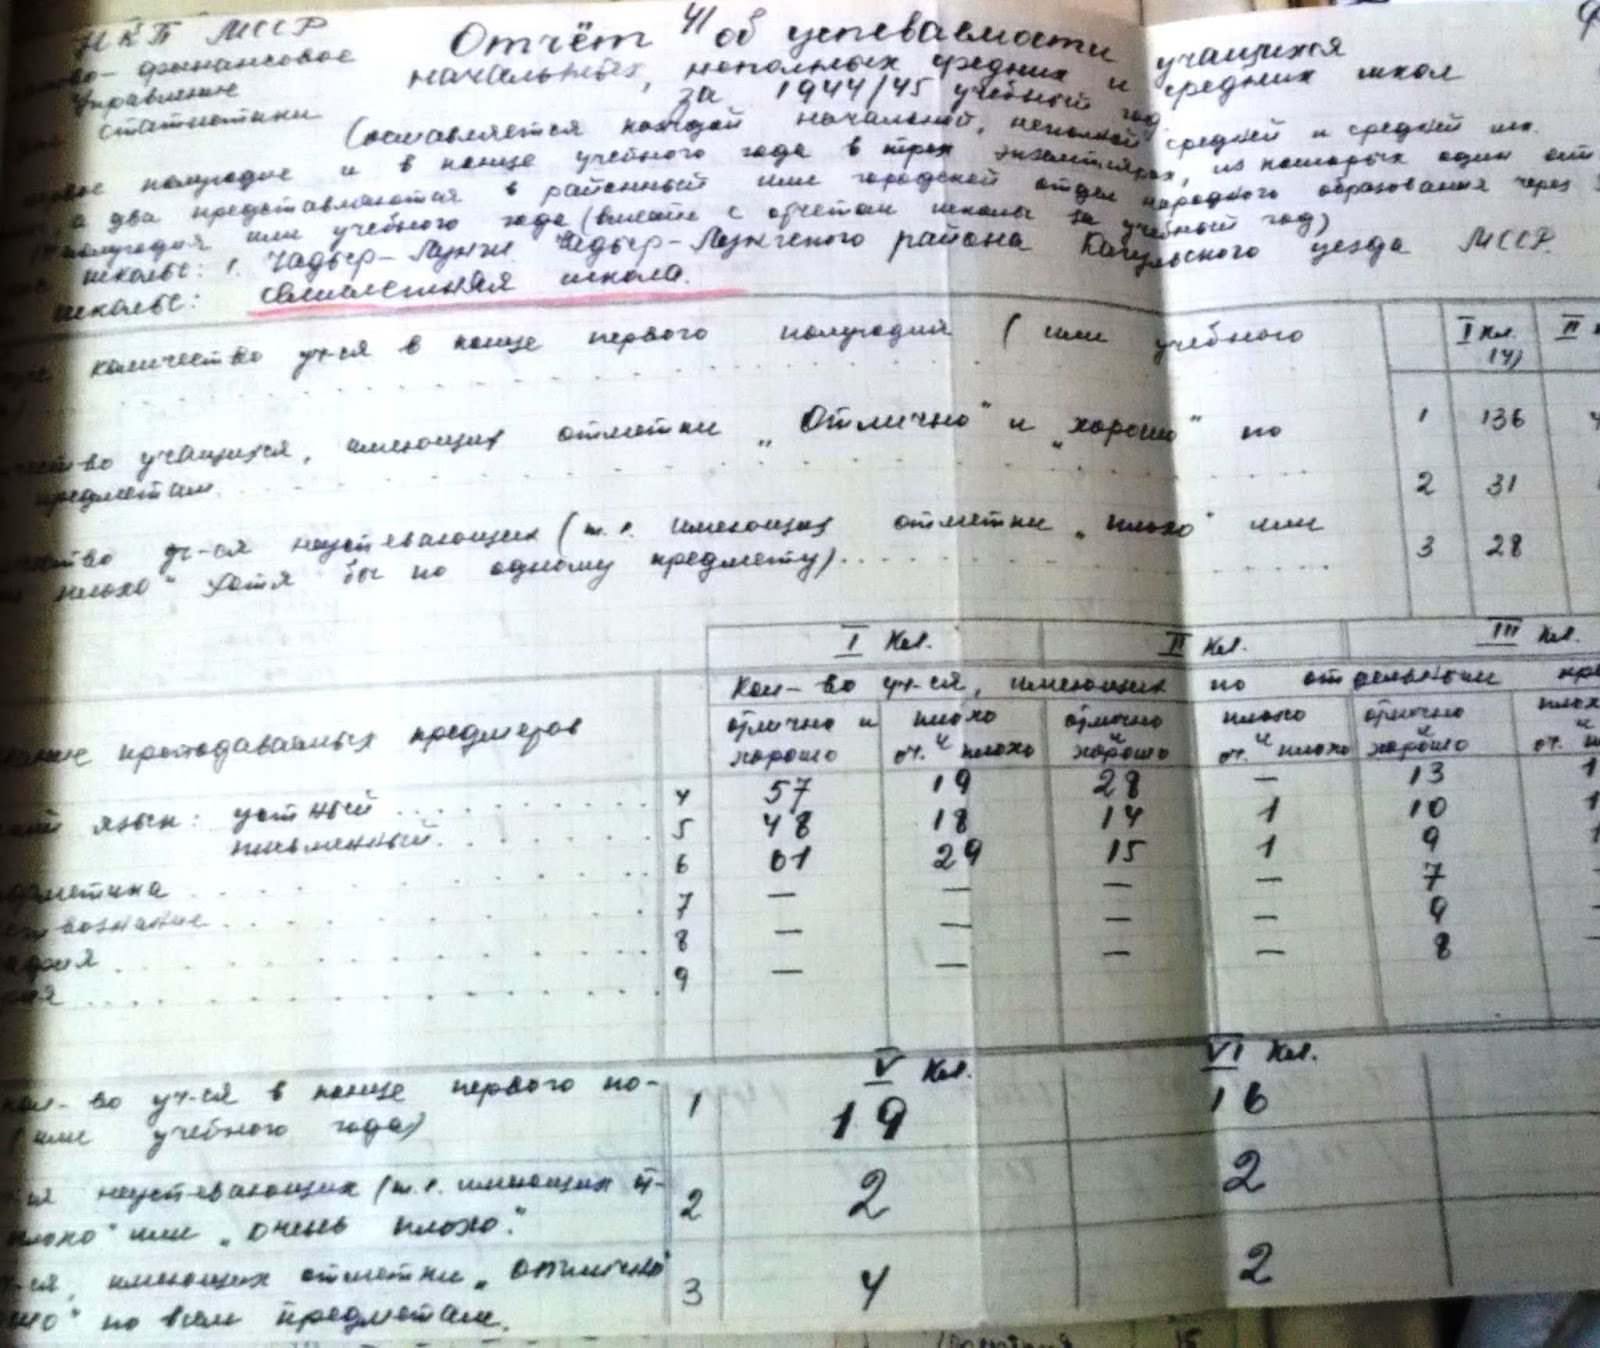 НКП МССР
41
Отчёт об успеваемости учащихся
финансовое
управление
статистики
начальных, неполных средних и средних школ
за 1944/45 учебный год
(составляется каждой начальной, неполной средней и средней шк.
первое полугодие и в конце учебного года в трех экземплярах, из которых один
а два представляются в районный или городской отдел народного образования через
полугодия или учебного года (вместе с отчетам школы за учебный год)
школы: 1. Чадыр-Лунги Чадыр-Лунгского района Кагульского уезда МССР.
школы: семилетняя школа.
количество уч-ся в конце первого полугодия (или учебного
I Кл. II
14)
учащихся, имеющих отметки „Отлично" и „хорошо" по
предметам
1 136
2 31
уч-ся неуспевающих (т.е. имеющих отметки „плохо" или
плохо" хотя бы по одному предмету)
3 28
I Кл. II Кл. III Кл.
Кол-во уч-ся, имеющих по отдельным
преподаваемых предметов
отлично и хорошо
плохо и оч. плохо
отлично и хорошо
плохо и оч. плохо
отлично и хорошо
язык: устный 4 57 19 28 — 13 1
письменный 5 48 18 14 1 10 1
6 61 29 15 1 9 1
7 — — — — 7 -
8 — — — — 9 -
9 — — — — 8 -
V Кл. VI Кл.
кол-во уч-ся в конце первого по-
(или учебного года)
1 19 16
неуспевающих (т.е. имеющих
плохо" или „очень плохо."
2 2 2
имеющих отметки „отлично
по всем предметам.
3 4 2
15